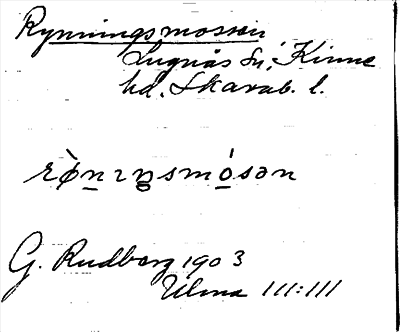 Rynningsmossen
Lugnås Sn, Kinne
hd. Skarab. l.
rø̀nıŋsmósən
G. Rudberg 1903
Ulma 111:111